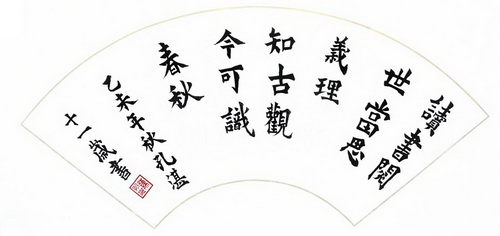 讀書閱
世當思
義理
知古觀
今可識
春秋
乙未年秋孔湛
十一歲書